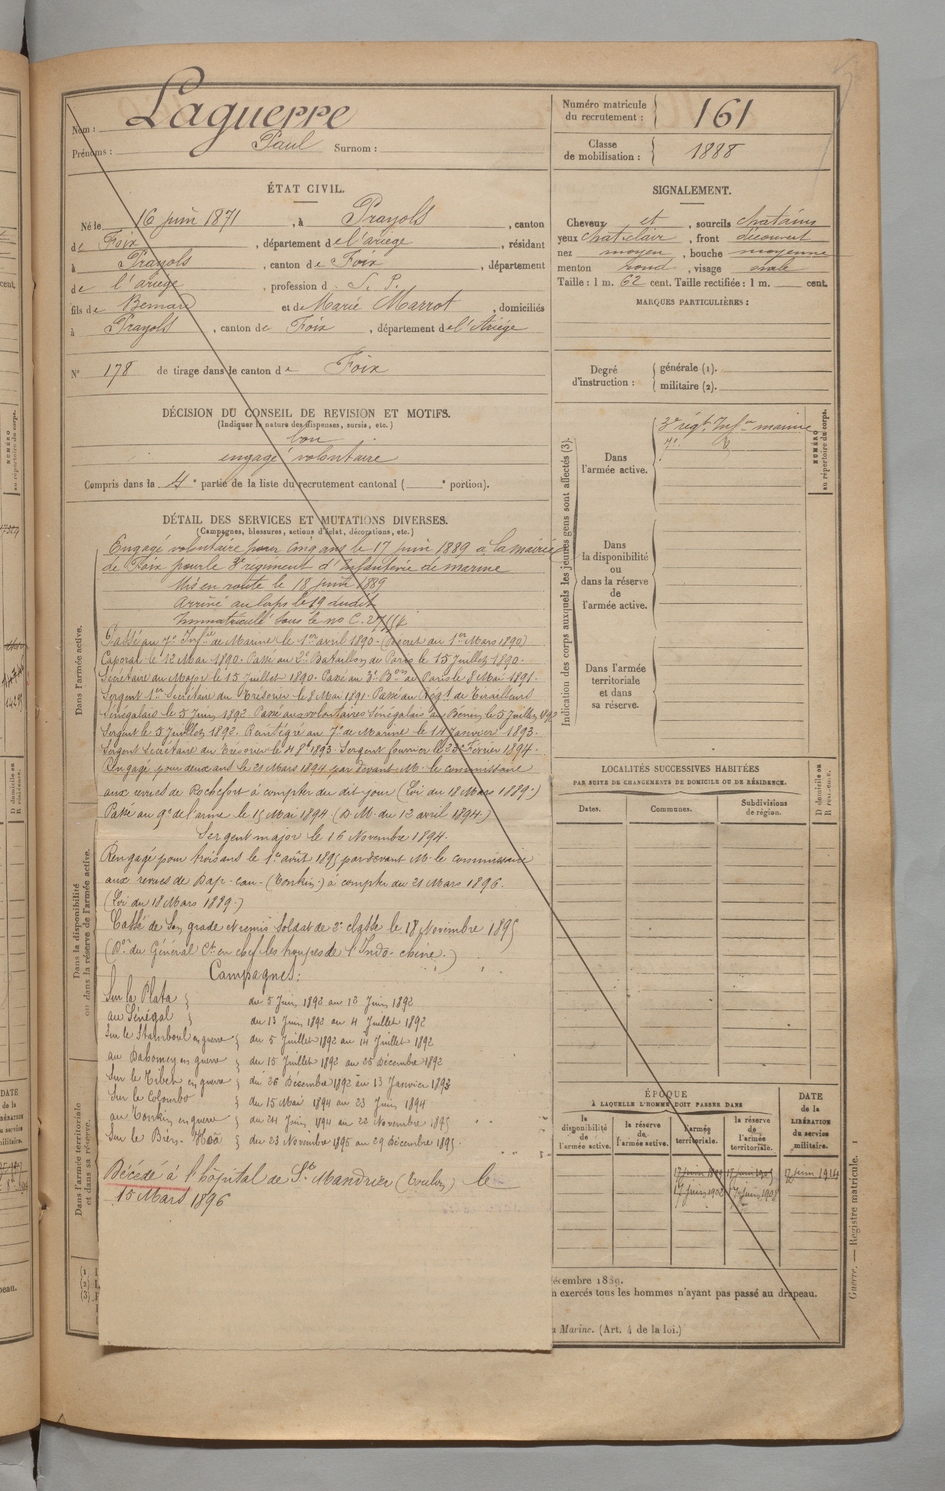 Nom : Laguerre
Prénoms : Paul Surnom :
Numéro matricule du recrutement : 161
Classe de mobilisation : 1888
ÉTAT CIVIL.
Né le 16 juin 1871, à Prayols, canton
de Foix, département de l'ariège, résidant
à Prayols, canton de Foix, département
de l'ariège, profession d S. P.
fils de Bernard et de Marie Marrot, domiciliés
à Prayols, canton de Foix, département de l'Ariège
N° 178 de tirage dans le canton de Foix
SIGNALEMENT.
Cheveux et, sourcils chatains
yeux chat. clair, front découvert
nez moyen, bouche moyenne
menton rond, visage ovale
Taille : 1 m. 62 cent. Taille rectifiée : 1 m. cent.
MARQUES PARTICULIÈRES :
Degré d'instruction : générale (1).
militaire (2).
DÉCISION DU CONSEIL DE REVISION ET MOTIFS.
(Indiquer la nature des dispenses, sursis, etc.)
bon
engagé volontaire
Compris dans la 4e partie de la liste du recrutement cantonal ( e portion).
DÉTAIL DES SERVICES ET MUTATIONS DIVERSES.
(Campagnes, blessures, actions d'éclat, décorations, etc.)
Engagé volontaire pour cinq ans le 17 juin 1889 à la mairie
de Foix pour le 3e regiment d'infanterie de marine
Mis en route le 18 juin 1889
Arrivé au corps le 19 dudit
Immatriculé sous le no C.
Passé au 7e Infie de Marine le 1er avril 1890. (Décret du 1er Mars 1890)
Caporal le 12 Mai 1890. Passé au 3e Bataillon de Paris le 15 Juillet 1890.
Secrétaire du Major le 15 Juillet 1890. Passé au 3e Bon de Paris le 8 Mai 1891.
Sergent 1er Secrétaire du Trésorier le 8 Mai 1891. Passé au Régt de Tirailleurs
Sénégalais le 5 Juin 1892. Passé aux volontaires Sénégalais au Bénin le 5 Juillet 1892
Sergent le 5 Juillet 1892. Réintégré au 7e de Marine le 14 Janvier 1893.
Sergent Secrétaire du Trésorier le 1893. Sergent fourrier le Février 1894.
Rengagé pour deux ans le 21 Mars 1894 par devant M. le commissaire
aux revues de Rochefort à compter du dit jour (Loi du 18 Mars 1889.)
Passé au 9e de l'arme le 15 Mai 1894 (D. M. du 12 avril 1894.)
Sergent major le 16 Novembre 1894.
Rengagé pour trois ans le 1er août 1895 par devant M. le commissaire
aux revues de (Tonkin) à compter du 21 Mars 1896.
(Loi du 18 Mars 1889.)
Cassé de son grade et remis Soldat de 2e classe le 18 Novembre 1895
(Don du Général Ct en chef les troupes de l'Indo-chine.)
Campagnes :
Sur la Plata du 5 Juin 1892 au 12 Juin 1892
au Sénégal du 13 Juin 1892 au 4 Juillet 1892
Sur le Stamboul en guerre du 5 Juillet 1892 au 14 Juillet 1892
au Dahomey en guerre du 15 Juillet 1892 au 25 Décembre 1892
Sur le Tibet en guerre du 26 Décembre 1892 au 13 Janvier 1893
Sur le Colombo du 15 Mai 1894 au 23 Juin 1894
au Tonkin en guerre du 24 Juin 1894 au 22 Novembre 1895
Sur le Bien-Hoà du 23 Novembre 1895 au 29 Décembre 1895.
Décédé à l'hôpital de St Mandrier (Toulon) le
15 Mars 1896
Dans l'armée active.
Dans la disponibilité
ou dans la réserve de l'armée active.
Dans l'armée territoriale
et dans sa réserve.
Indication des corps auxquels les jeunes gens sont affectés (3).
Dans l'armée active.
3e régt Infie marine
7e
Dans la disponibilité ou dans la réserve de l'armée active.
Dans l'armée territoriale et dans sa réserve.
NUMÉRO au répertoire du corps.
LOCALITÉS SUCCESSIVES HABITÉES
PAR SUITE DE CHANGEMENTS DE DOMICILE OU DE RÉSIDENCE.
Dates. Communes. Subdivisions de région. D domicile ou R résidence.
ÉPOQUE
À LAQUELLE L'HOMME DOIT PASSER DANS
la disponibilité de l'armée active. la réserve de l'armée active. l'armée territoriale. la réserve de l'armée territoriale.
DATE de la LIBÉRATION du service militaire.
17 juin 1914
écembre 1889.
n exercés tous les hommes n'ayant pas passé au drapeau.
a Marine. (Art. 4 de la loi.)
Guerre. — Registre matricule. 1